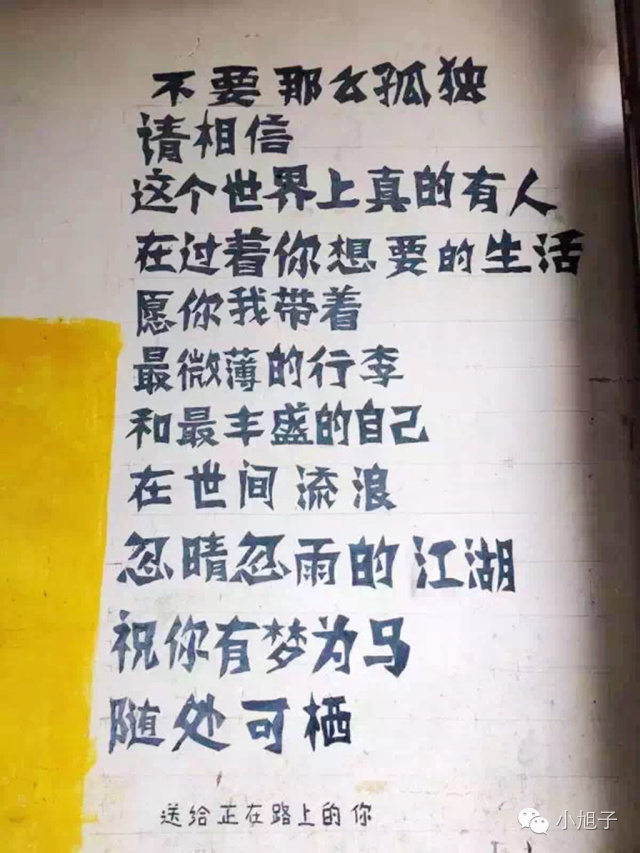 不要那么孤独
请相信
这个世界上真的有人
在过着你想要的生活
愿你我带着
最微薄的行李
和最丰盛的自己
在世间流浪
忽晴忽雨的江湖
祝你有梦为马
随处可栖
送给正在路上的你
小旭子